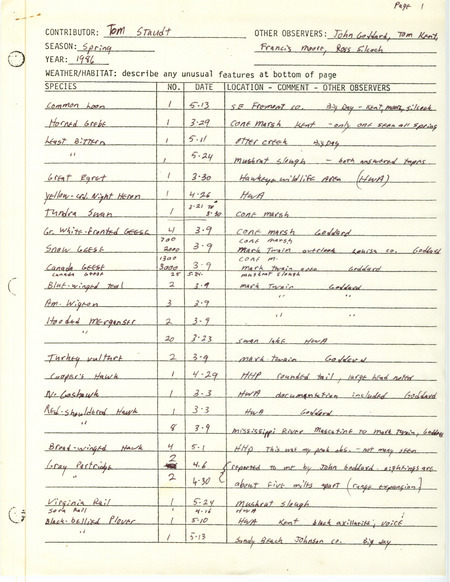 Page 1
CONTRIBUTOR: Tom Staudt OTHER OBSERVERS: John Goddard, Tom Kent,
SEASON: Spring Francis Moore, Ross Silcock
YEAR: 1986
WEATHER/HABITAT: describe any unusual features at bottom of page
SPECIES NO. DATE LOCATION - COMMENT - OTHER OBSERVERS
Common Loon 1 5-13 SE Fremont co. Big Day - Kent, Moore, Silcock
Horned Grebe 1 3-29 Cone Marsh Kent - only one seen all spring
Least Bittern 1 5-11 Otter Creek Big Day
" 1 5-24 Muskrat Slough - both answered tapes
Great Egret 1 3-30 Hawkeye Wildlife Area (HWA)
Yellow-crd. Night Heron 1 4-26 HWA
Tundra Swan 1 3-21 to 3-30 Cone Marsh
Gr. White-fronted Geese 4 3-9 Cone Marsh Goddard
Snow Geese 700 2000 3-9 Cone Marsh Mark Twain overlook Louisa co. Goddard
Canada Geese 1300 3000 3-9 Cone M. Mark Twain area Goddard
Canada Goose 25 5-24 Muskrat Slough
Blue-winged Teal 2 3-9 Mark Twain Goddard
Am. Wigeon 3 3-9 " "
Hooded Merganser 2 3-9 " "
20 3-23 Swan Lake HWA
Turkey Vulture 2 3-9 Mark Twain Goddard
Cooper's Hawk 1 4-29 HHP rounded tail, large head noted
No. Goshawk 1 3-3 HWA documentation included Goddard
Red-shouldered Hawk 1 3-3 HWA Goddard
8 3-9 Mississippi River Muscatine to Mark Twain, Goddard
Broad-winged Hawk 4 5-1 HHP This was my peak obs. - not many seen
Gray Partridge 2 4-6 reported to me by John Goddard, sightings are
2 4-30 about five miles apart (range expansion)
Virginia Rail 1 5-24 Muskrat Slough
Sora Rail 1 4-16 HWA
Black-bellied Plover 1 5-10 HWA Kent black axillaries, voice
" 1 5-13 Sandy Beach Johnson co. Big Day